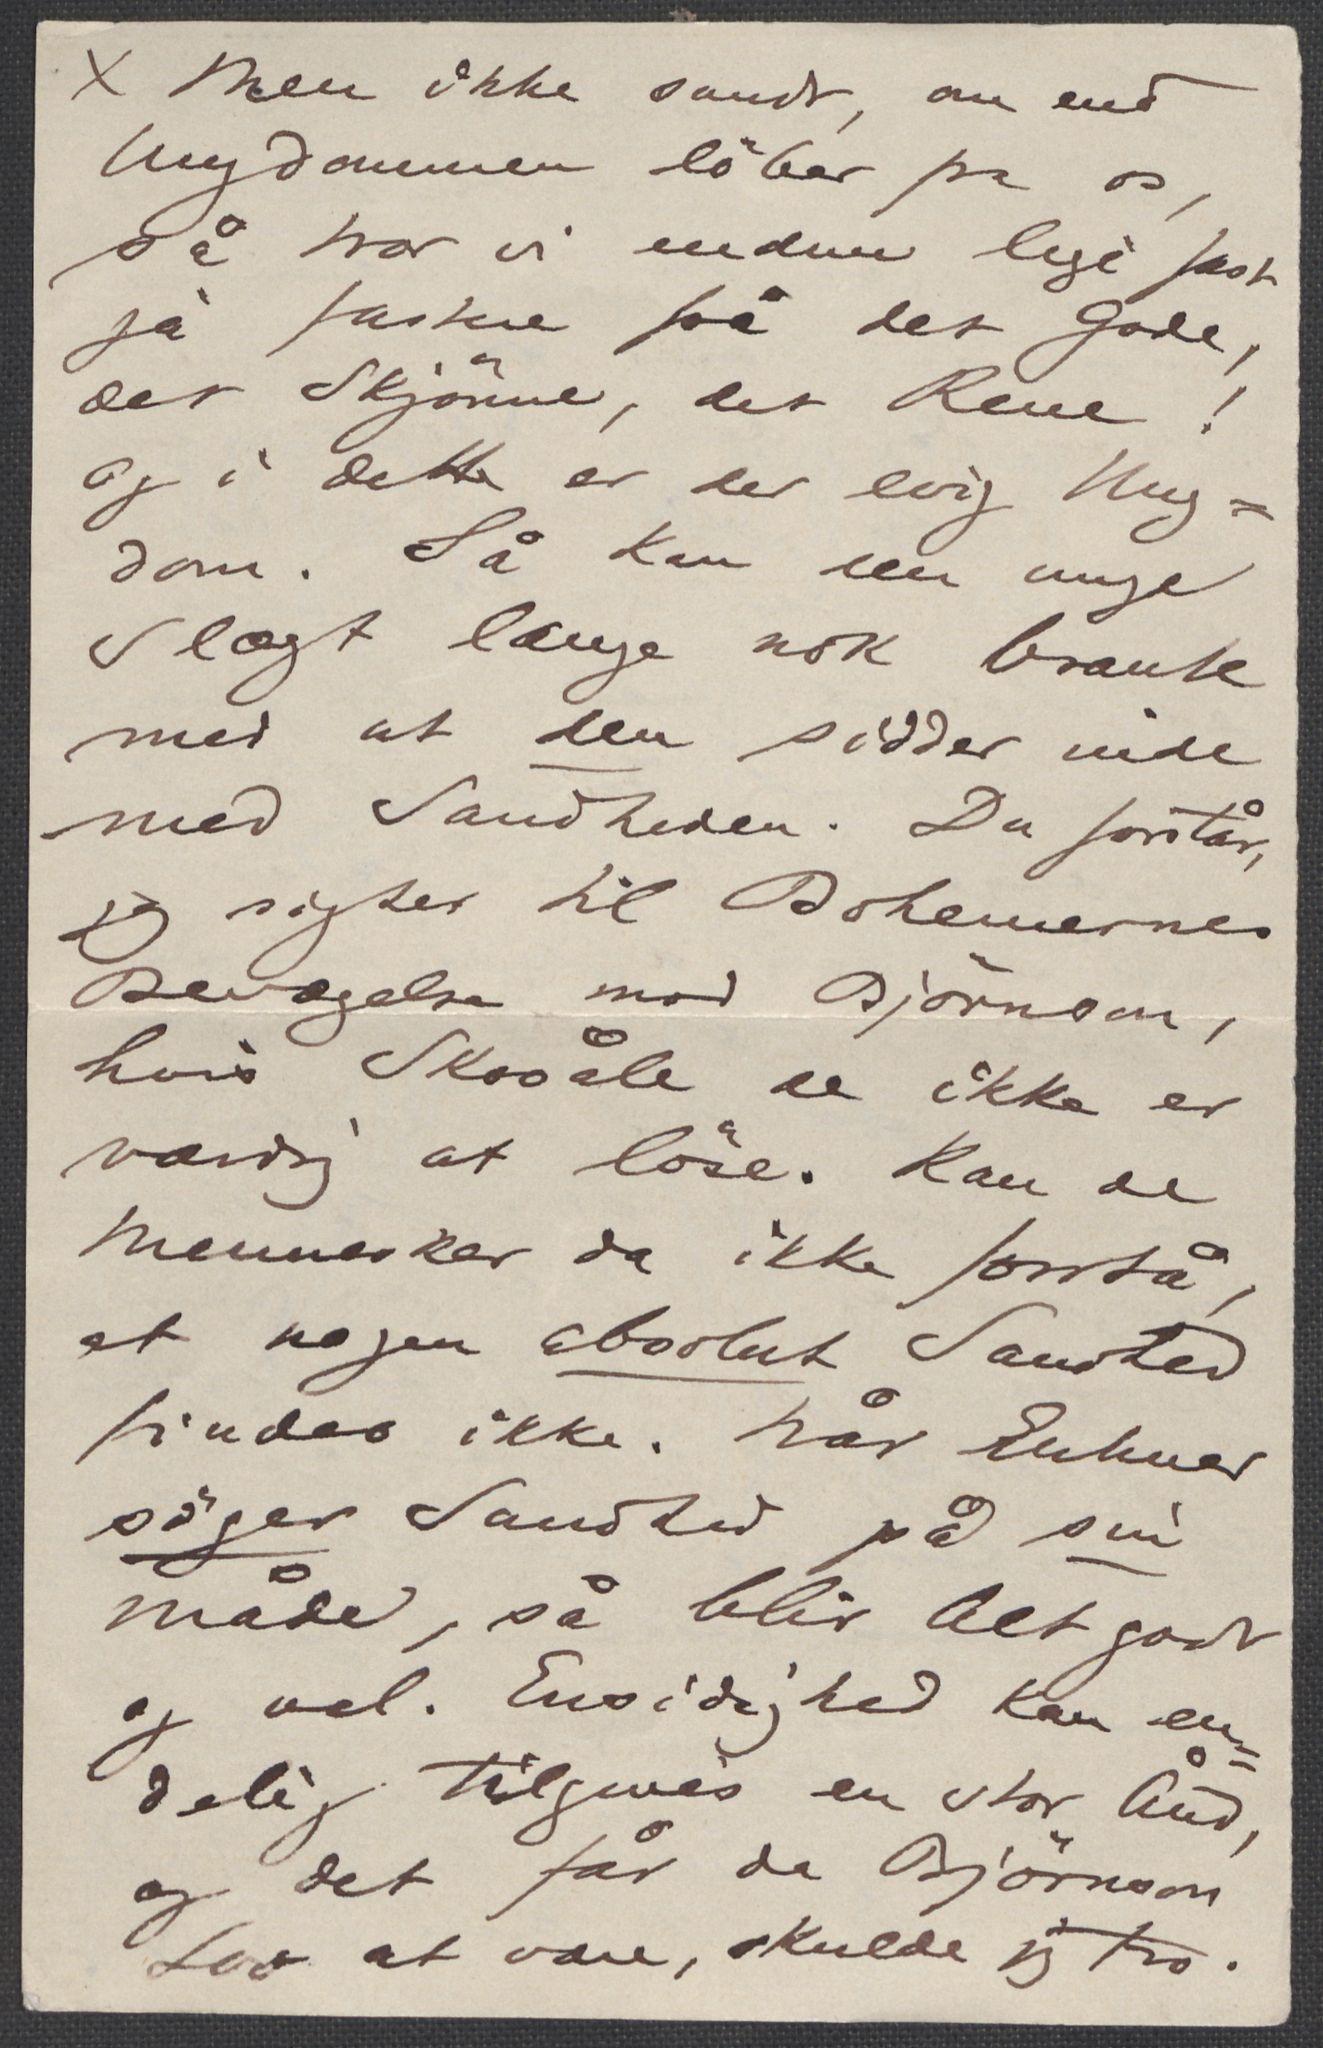 X Men ikke sandt, om end
Ungdommen löber fra os,
så tror vi endnu lige fast
ja fastere på det Gode,
det Skjönne, det Rene!
og i dette er der evig Ung=
dom. Så kan den unge
Slægt længe nok braute
med at den sidder inde
med Sandheden. Du forstår,
jeg sigter til Bohemernes
Bevægelse mod Björnson,
hvis Skosåle de ikke er
værdig at löse. Kan de
Mennesker da ikke forstå,
at nogen absolut Sandhed
findes ikke. Når Enhver
söger Sandhed på sin
måde, så blir Alt godt
og vel. Ensidighed kan en=
delig tilgives en stor Ånd,
og det får da Björnson
Lov at være, skulde jeg tro.